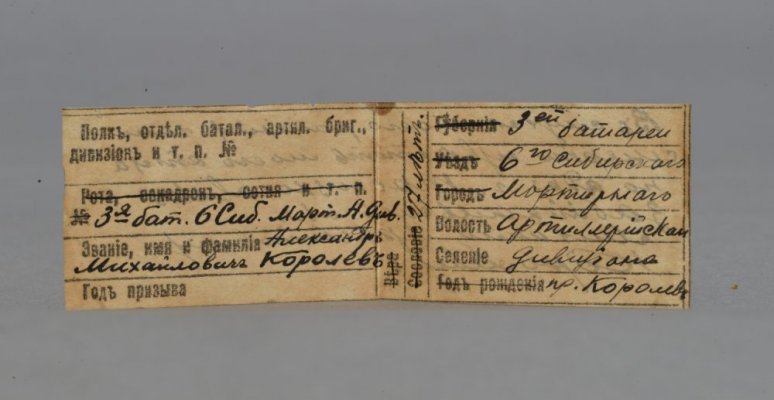 Полкъ, отдѣл. батал., артил. бриг.,
дивизіонъ и т. п. №
Рота, эскадронъ, сотня и т. п.
№ 3я бат. 6 Сиб. Морт. А. Див.
Званіе, имя и фамилія Александръ
Михайловичъ Королевъ
Годъ призыва
Вѣра
Сословіе 27 лѣтъ.
Губернія 3ей батареи
Уѣздъ 6го Сибирскаго
Городъ Мортирнаго
Волость Артиллерійскаго
Селеніе дивизіона
Годъ рожденія пр. Королевъ